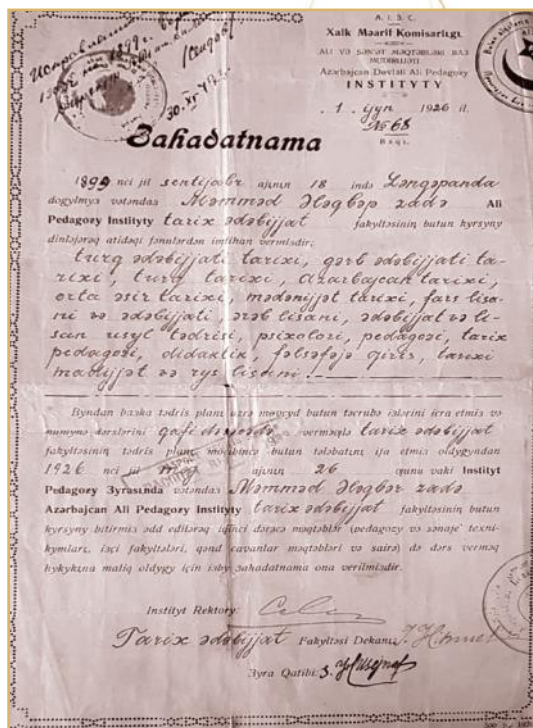 A. I. Ş. C.
Xalk Maarif Komisarlıgı
ALI VƏ SƏN'ƏT MƏQTƏBLƏRI BAЗ
MUDIRIJJƏTI
Azərbajcan Dəvləti Ali Pedagoƶy
INSTITYTY
1 ijyn 1926 il.
№ 68
Baqı.
1899
30.XI.
Ꞩahadatnama
1899 nci jil sentijabr ajının 18 ində Ləngəranda
dogylmyş vətəndaş Məmməd Ələgbər zadə Ali
Pedagoƶy Instityty tarix ədəbijjat fakyltəsinin butun kyrsyny
dinləjərəq atidəqi fənnlərdən imtihan vermişdir:
turq ədəbijjati tarixi, gərb ədəbijjati ta-
rixi, turq tarixi, Azərbajcan tarixi,
orta əsir tarixi, mədənijjət tarixi, fars lisa-
ni və ədəbijjati, ərəb lisani, ədəbijjat və li-
san usyl tədrisi, psixoloƶi, pedagoƶi, tarix
pedagoƶi, didaktik, fəlsəfəjə giriş, tarixi
və rys lisani.
Byndan başka tədris planı uzrə məvcyd butun təcrubə işlərini icra etmiş və
numynə dərslərini qafi dərəcədə verməqlə tarix ədəbijjat
fakyltəsinin tədris planı mocibincə butun tələbatını ifa etmiş oldygyndan
1926 nci jil maj ajının 26 qunu vaki Instityt
Pedagoƶy Şyrasında vətəndaş Məmməd Ələgbər zadə
Azərbajcan Ali Pedagoƶy Instityty tarix ədəbijjat fakyltəsinin butun
kyrsyny bitirmiş ədd edilərəq iqinci dərəcə məqtəblər (pedagoƶy və sənaje' texni-
kymları, işci fakyltələri, qənd cavanlar məqtəbləri və sairə) də dərs verməq
hykykına maliq oldygy icin işby şahadatnama ona verilmişdir.
Instityt Rektory:
Tarix ədəbijjat Fakyltəsi Dekanı:
Şyra Qatibi: